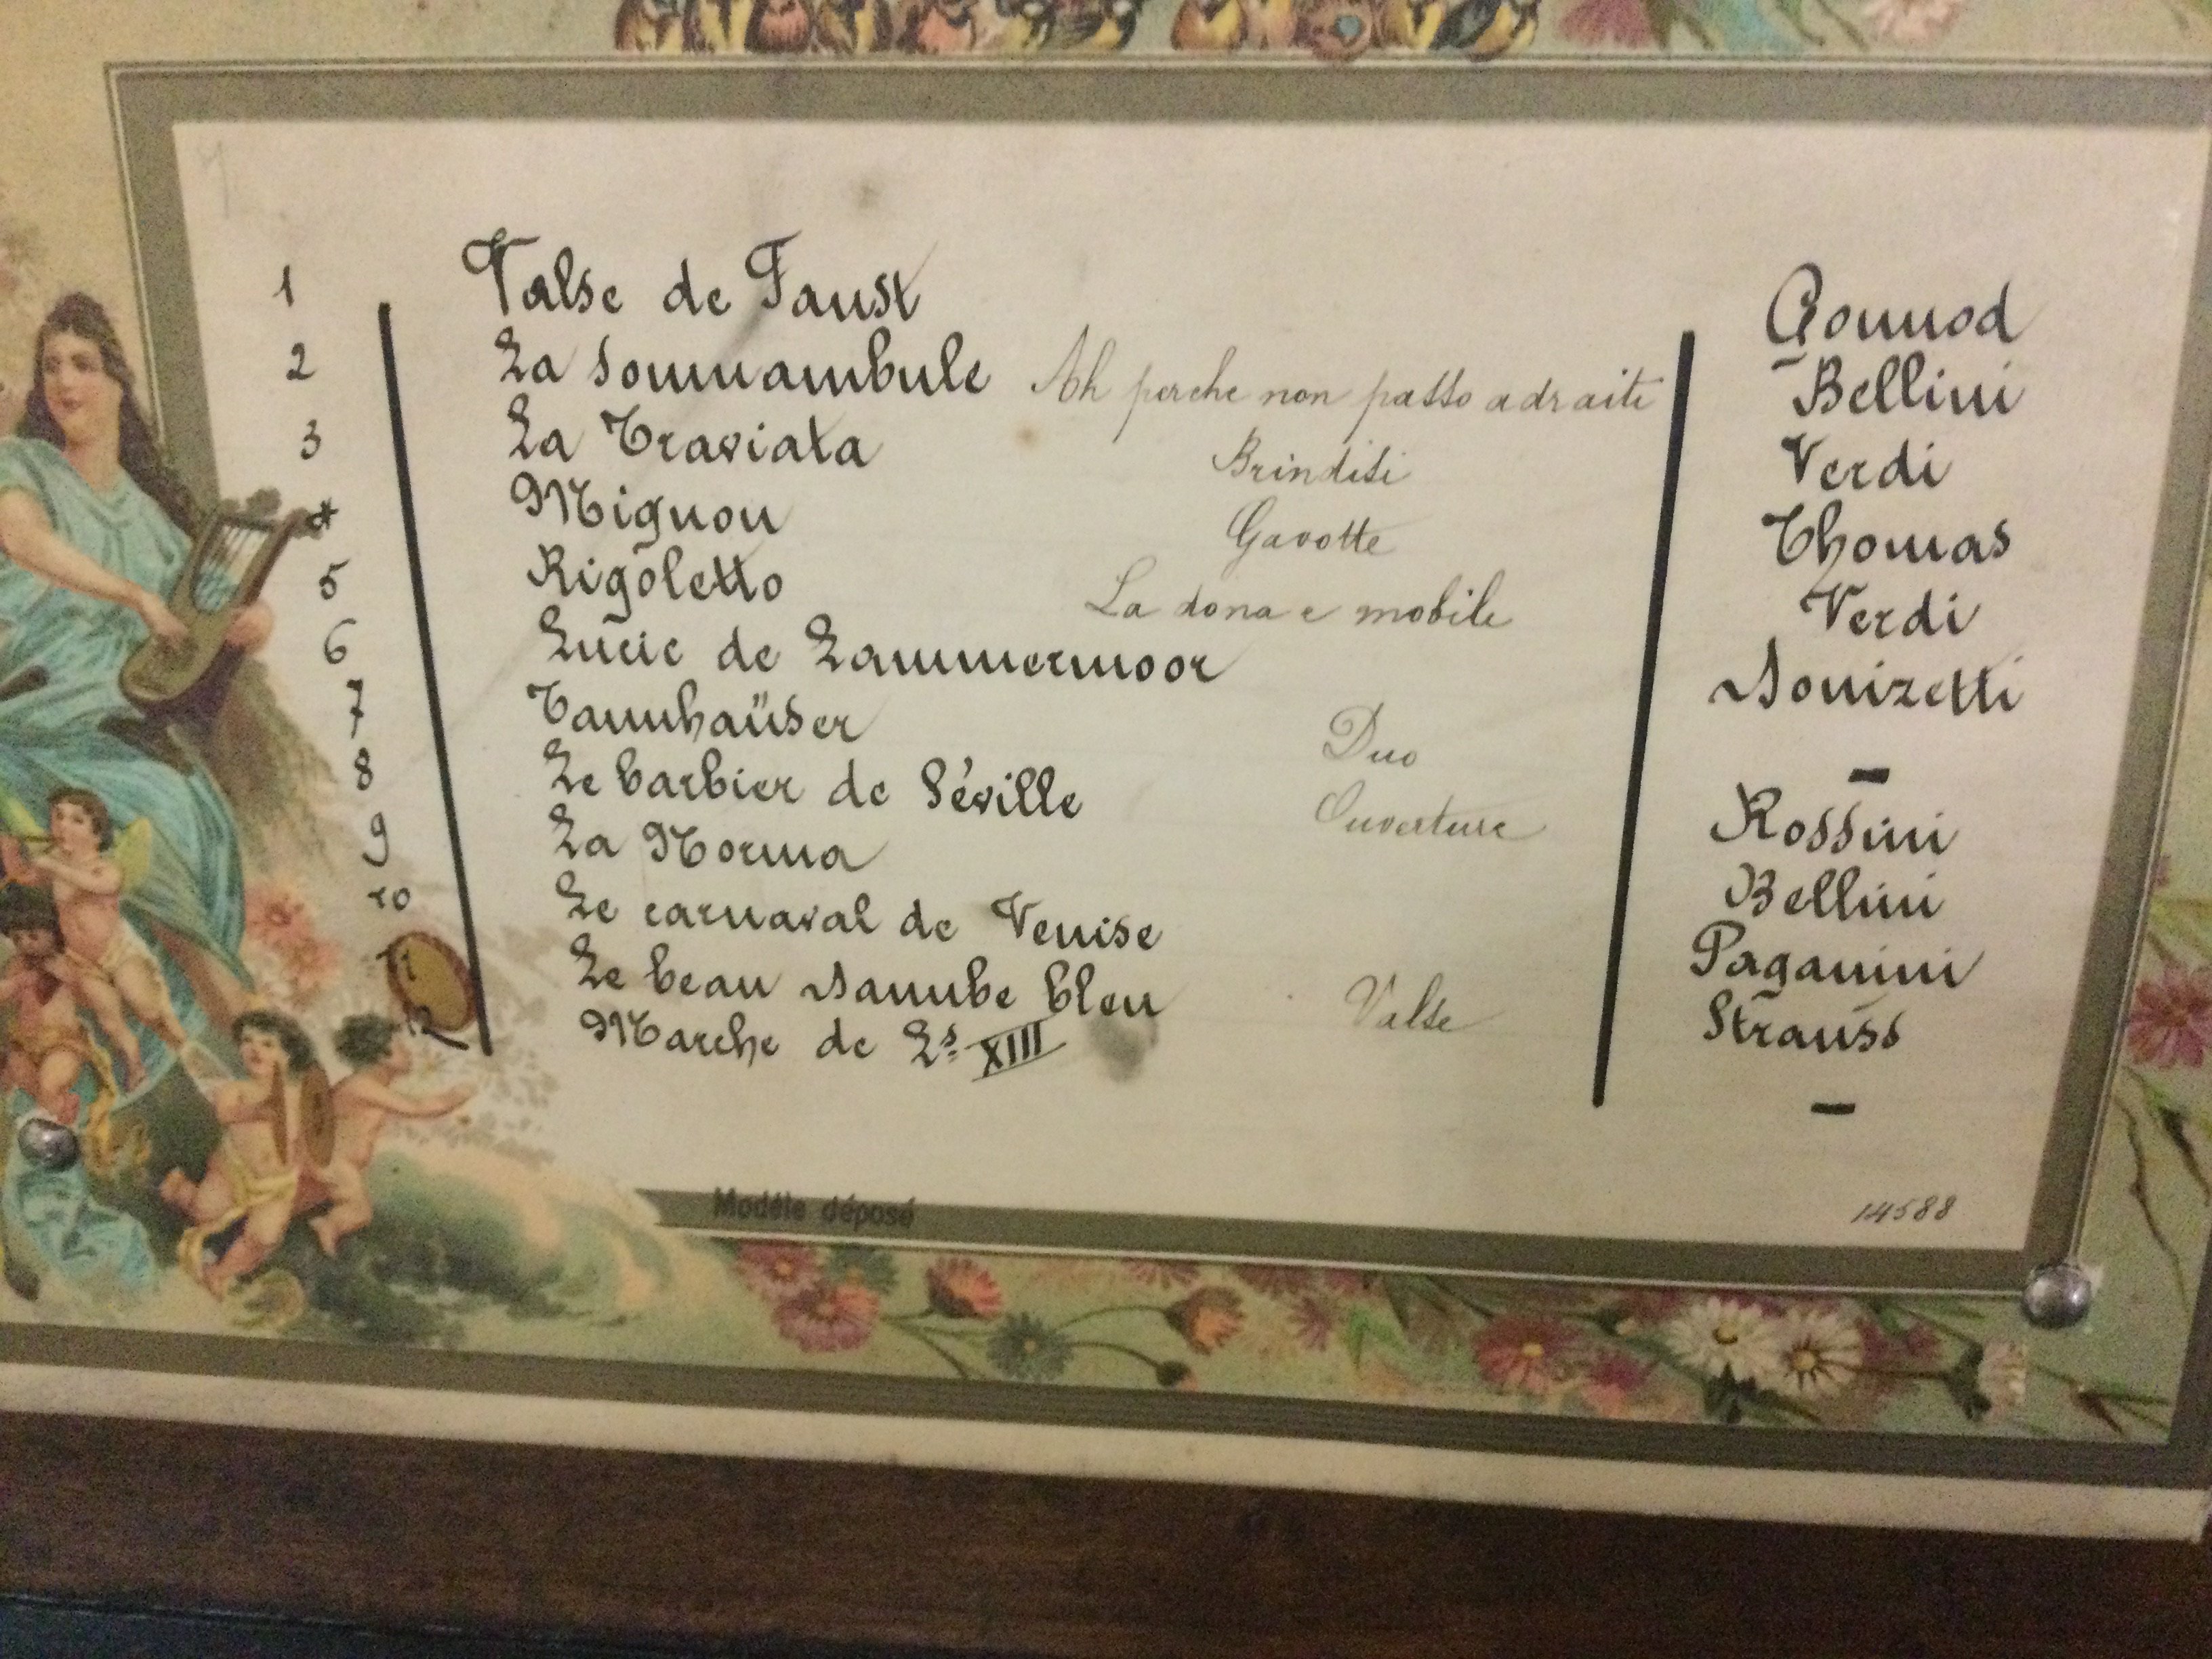 1 Valse de Faust Gounod
2 La Somnambule Ah perche non passo adraite Bellini
3 La Traviata Brindisi Verdi
4 Mignon Gavotte Thomas
5 Rigoletto La dona e mobile Verdi
6 Lucie de Lammermoor Donizetti
7 Tannhaüser Duo -
8 Le barbier de Séville Ouverture Rossini
9 La Norma Bellini
10 Le carnaval de Venise Paganini
11 Le beau Danube bleu Valse Strauss
12 Marche de Ls XIII -
Modèle déposé
14588